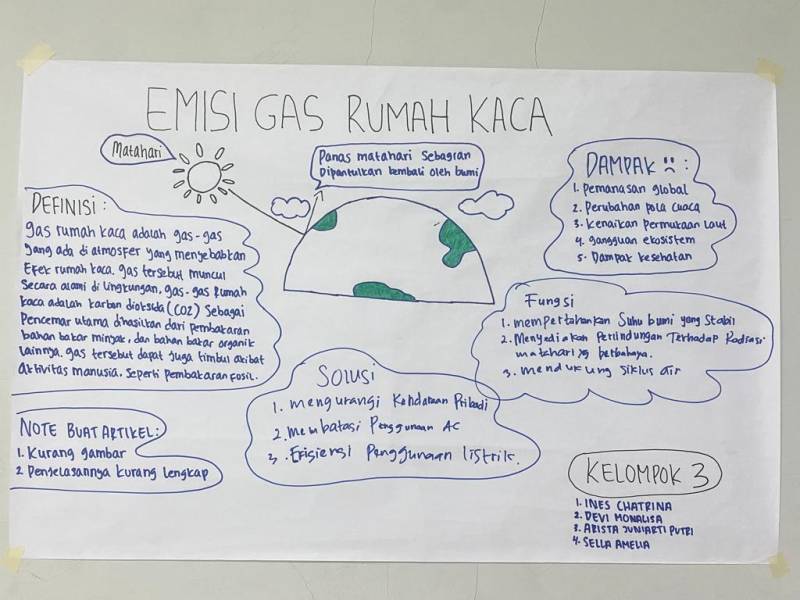 EMISI GAS RUMAH KACA
Matahari
Panas matahari Sebagian
Dipantulkan kembali oleh bumi
DEFINISI :
gas rumah kaca adalah gas-gas
yang ada di atmosfer yang menyebabkan
Efek rumah kaca. gas tersebut muncul
Secara alami di lingkungan, gas-gas Rumah
kaca adalah karbon dioksida (CO2) Sebagai
Pencemar utama dihasilkan dari pembakaran
bahan bakar minyak, dan bahan bakar organik
lainnya. gas tersebut dapat juga timbul akibat
aktivitas manusia. seperti pembakaran fosil.
NOTE BUAT ARTIKEL:
1. Kurang gambar
2 Penjelasannya kurang lengkap
SOLUSI
1. mengurangi Kendaraan Pribadi
2. membatasi Penggunaan AC
3. Efisiensi Penggunaan listrik.
DAMPAK :
1. Pemanasan global
2. Perubahan pola cuaca
3. kenaikan permukaan Laut
4. gangguan ekosistem
5. Dampak kesehatan
Fungsi
1. mempertahankan Suhu bumi yang stabil
2. Menyediakan Perlindungan Terhadap Radiasi
matahari yg berbahaya.
3. mendukung siklus air
KELOMPOK 3
1. INES CHATRINA
2. DEVI MONALISA
3. ARISTA JUNIARTI PUTRI
4. SELLA AMELIA